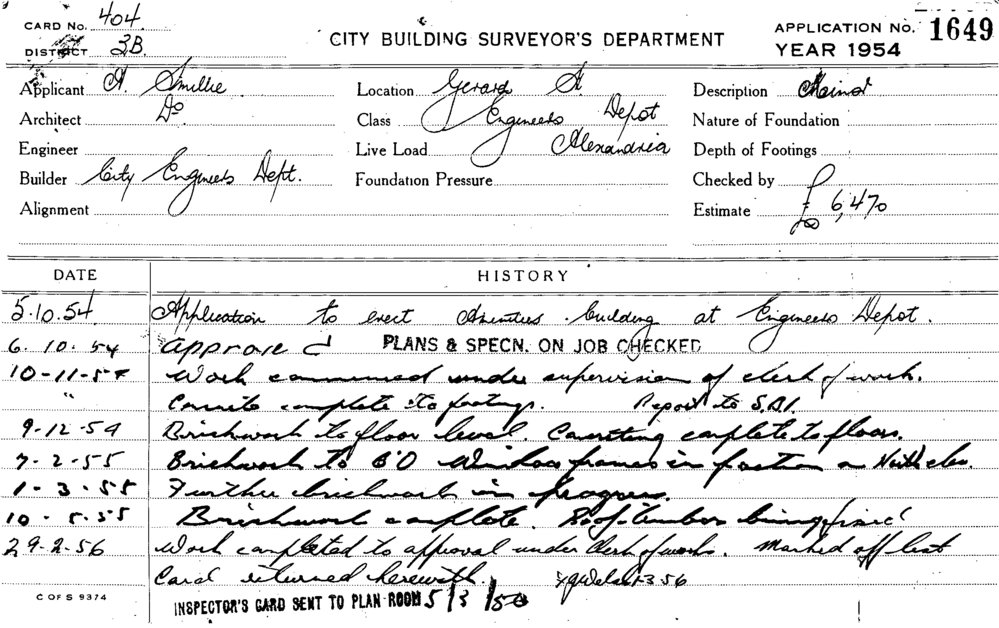 CARD No. 404
DISTRICT 3B
CITY BUILDING SURVEYOR'S DEPARTMENT
APPLICATION No. 1649
YEAR 1954
Applicant A. Smillie
Architect Do
Engineer
Builder City Engineers Dept.
Alignment
Location Gerard St
Class Engineers Depot
Live Load Alexandria
Foundation Pressure
Description
Nature of Foundation
Depth of Footings
Checked by
Estimate £ 6,470
DATE HISTORY
5.10.54 Application to erect Amenities building at Engineers Depot.
6.10.54 Approved PLANS & SPECN. ON JOB CHECKED
10-11-54 Work commenced under supervision of clerk of work.
" complete to footings. Report to S.B.I.
9-12-54 Brickwork to floor level. complete to floors.
7-2-55 Brickwork to 6'0 Window frames in position on North elev.
1-3-55 Further brickwork in progress.
10-5-55 Brickwork complete. Roof timbers being fixed
29-2-56 Work completed to approval under Clerk of works. Marked off list
Card returned herewith. 1356
C OF S 9374
INSPECTOR'S CARD SENT TO PLAN ROOM 5/3/56